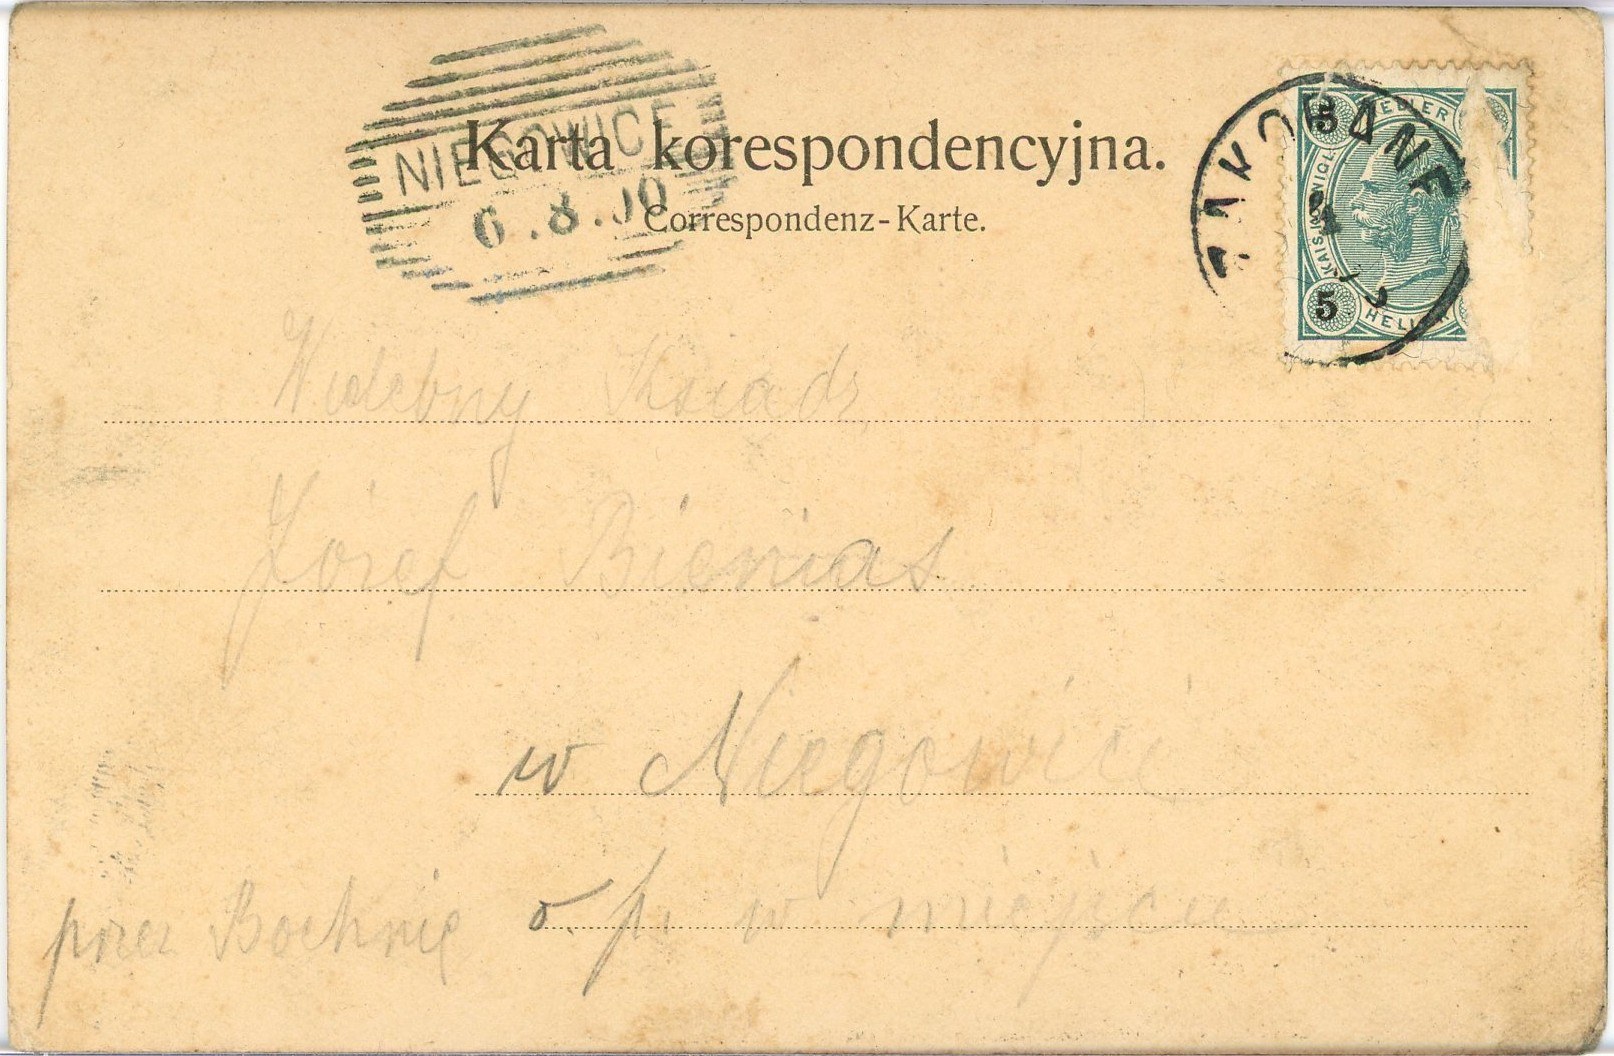 NIEGOWICE
6.8.00
Karta korespondencyjna.
Correspondenz-Karte.
ZAKOPANE
5 HELLER
KAIS. KÖNIGL.
5 HELLER
Wielebny Ksiądz
Józef Bienias
w Niegowici
przez Bochnię o. p. w miejscu